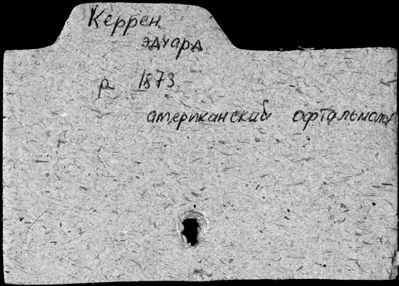 Керрен
Эдуард
р 1873
американский офтальмолог